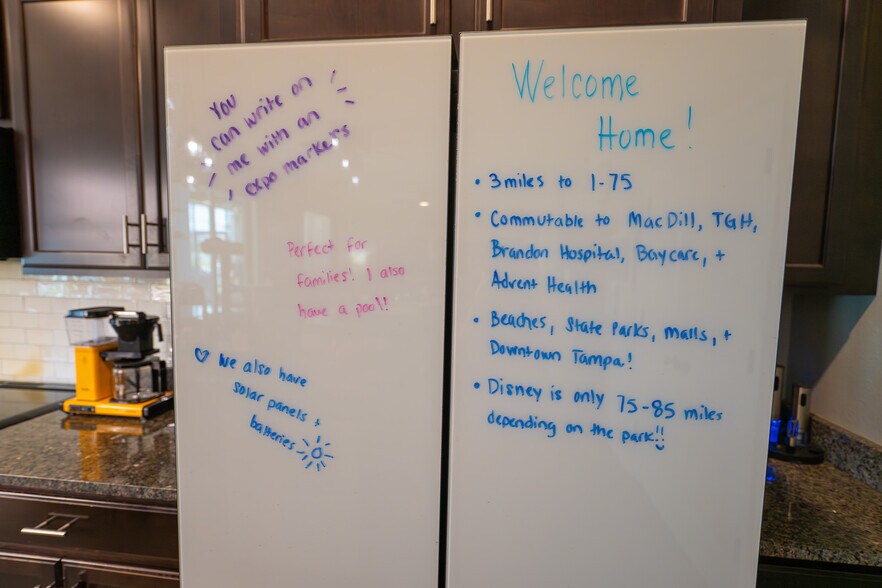 You
can write on
me with an
expo markers
Perfect for
families! I also
have a pool!
♡ We also have
solar panels +
batteries
Welcome
Home!
• 3 miles to I-75
• Commutable to MacDill, TGH,
Brandon Hospital, Baycare, +
Advent Health
• Beaches, State Parks, malls, +
Downtown Tampa!
• Disney is only 75-85 miles
depending on the park!!